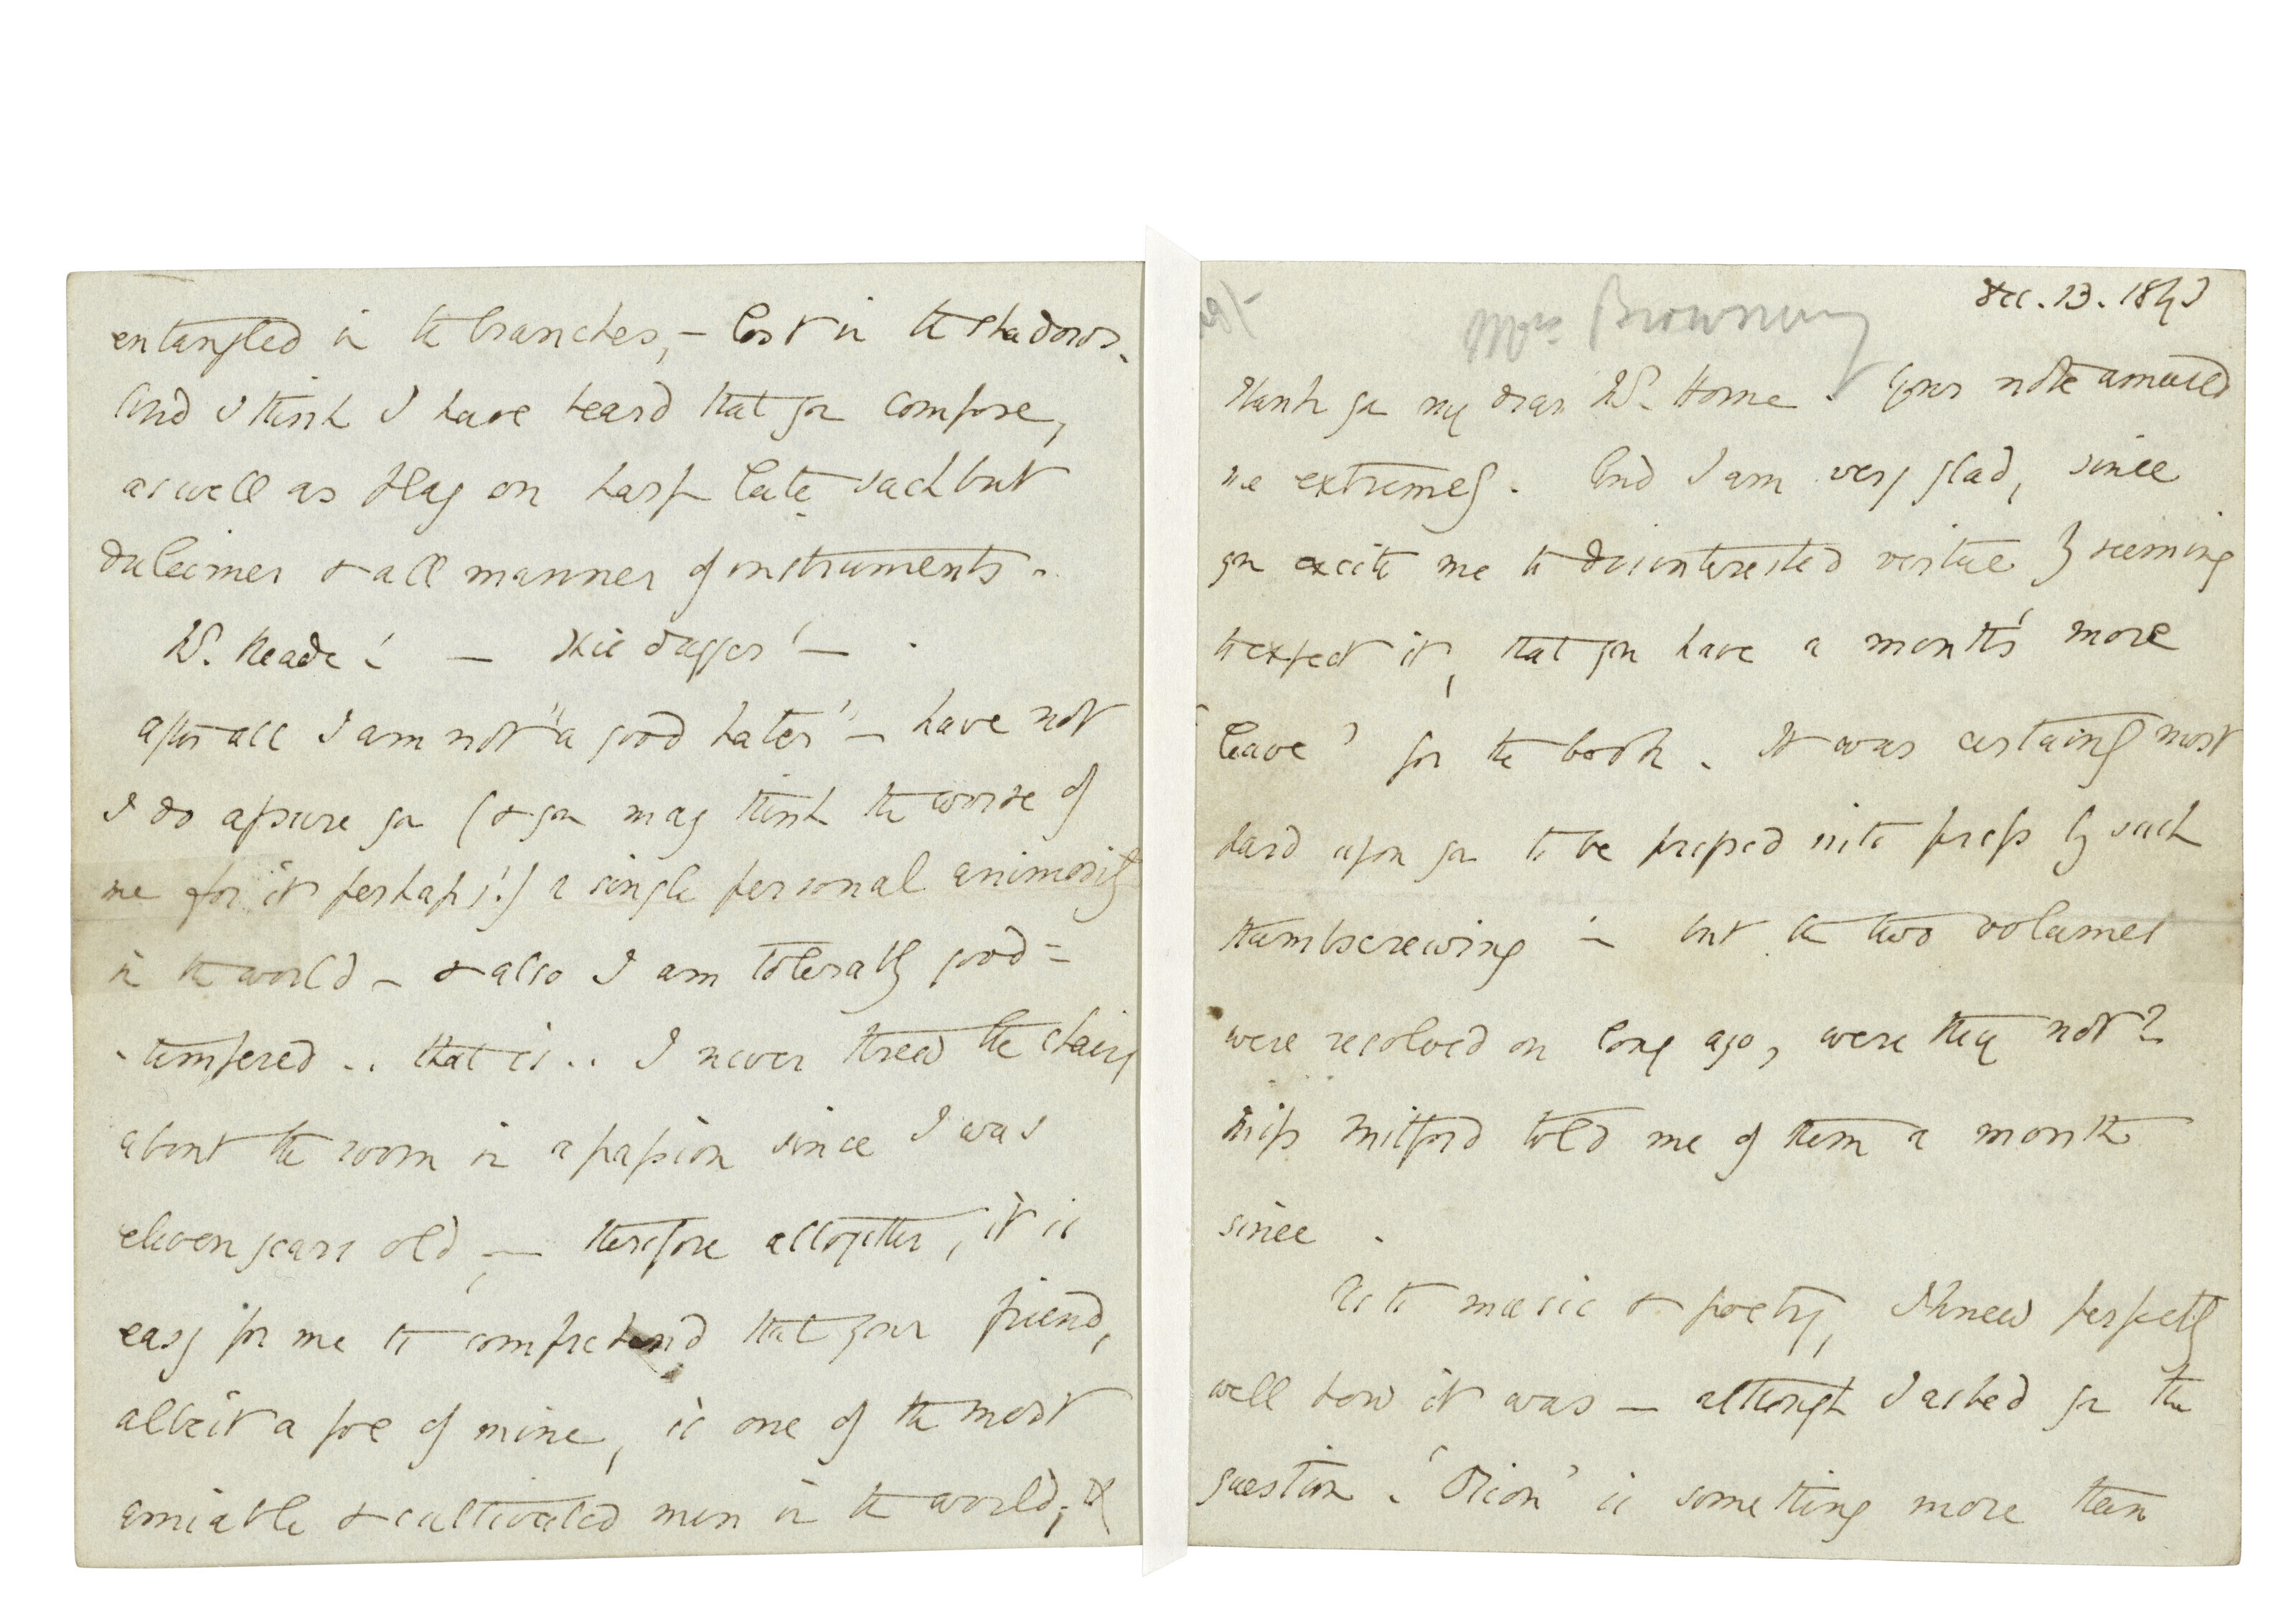 Dec. 13. 1843
Mrs Browning
Thank you my dear Mr. Horne. Your note amused
me extremely. And I am very glad, since
you excite me to disinterested virtue by seeming
to expect it, that you have a month's more
'leave' for the book. It was certainly most
hard upon you to be pressed into press by such
thumbscrewing – but the two volumes
were resolved on long ago, were they not?
Miss Mitford told me of them a month
since.
As to music & poetry, I knew perfectly
well how it was – although I asked you the
question. 'Orion' is something more than
entangled in the branches, – lost in the shadows.
And I think I have heard that you compose,
as well as play on harp lute sackbut
dulcimer & all manner of instruments.
Mr. Reade! –
after all I am not "a good hater" – have not
I do assure you (& you may think the worse of
me for it perhaps!) a single personal animosity
in the world – & also I am tolerably good=
-tempered .. that is .. I never threw the chairs
about the room in a passion since I was
eleven years old, – therefore altogether, it is
easy for me to comprehend that your friend,
albeit a foe of mine, is one of the most
amiable & cultivated men in the world; &